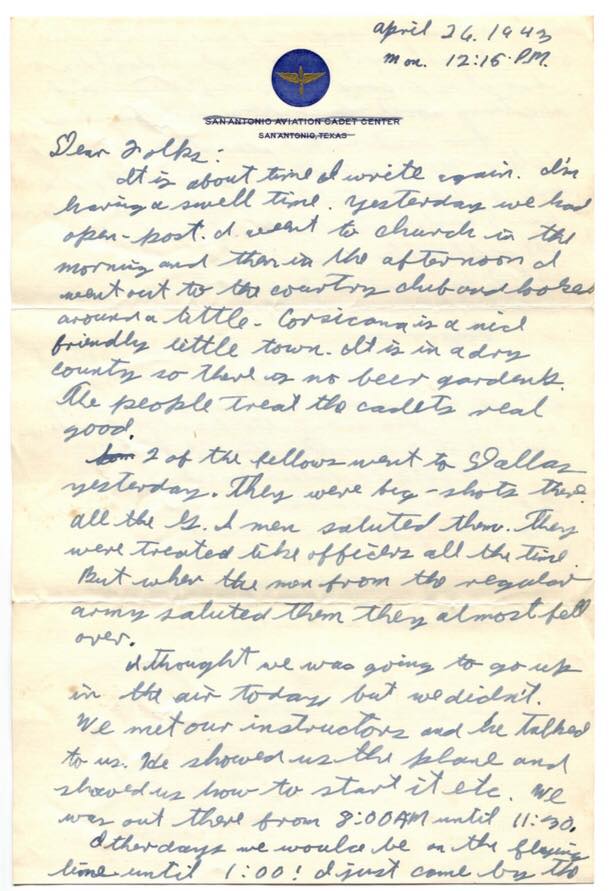 April 26. 1943
Mon. 12:15 P.M.
SAN ANTONIO AVIATION CADET CENTER
SAN ANTONIO, TEXAS
Dear Folks:
It is about time I write again. I'm
having a swell time. Yesterday we had
open-post. I went to church in the
morning and then in the afternoon I
went out to the country club and looked
around a little. Corsicana is a nice
friendly little town. It is in a dry
county so there is no beer gardens.
The people treat the cadets real
good.
2 of the fellows went to Dallas
yesterday. They were big-shots there
all the G. I men saluted them. They
were treated like officers all the time.
But when the men from the regular
army saluted them they almost fell
over.
I thought we was going to go up
in the air today but we didn't.
We met our instructors and he talked
to us. He showed us the plane and
showed us how to start it etc. We
was out there from 8:00 AM until 11:30.
Other days we would be on the flying
line until 1:00! I just come by the